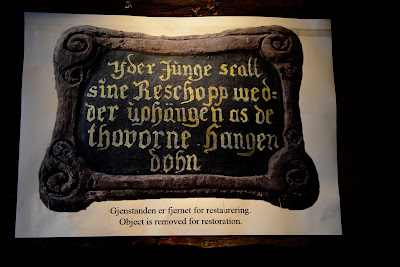 yder Junge scall
sine Reschopp wed=
der üphängen as de
thovorne hangen
dohn
Gjenstanden er fjernet for restaurering.
Object is removed for restoration.